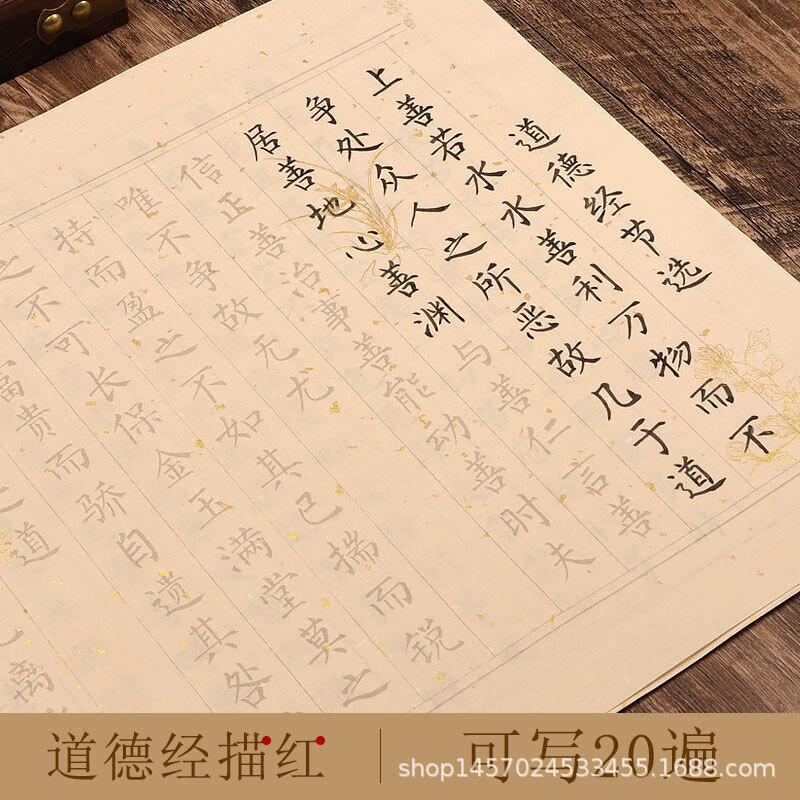 道德经节选
上善若水水善利万物而不
争处众人之所恶故几于道
居善地心善渊与善仁言善
信正善治事善能动善时夫
唯不争故无尤
持而盈之不如其已揣而锐
之不可长保金玉满堂莫之
富贵而骄自遗其咎
之道
离
道德经描红
可写20遍
shop1457024533455.1688.com